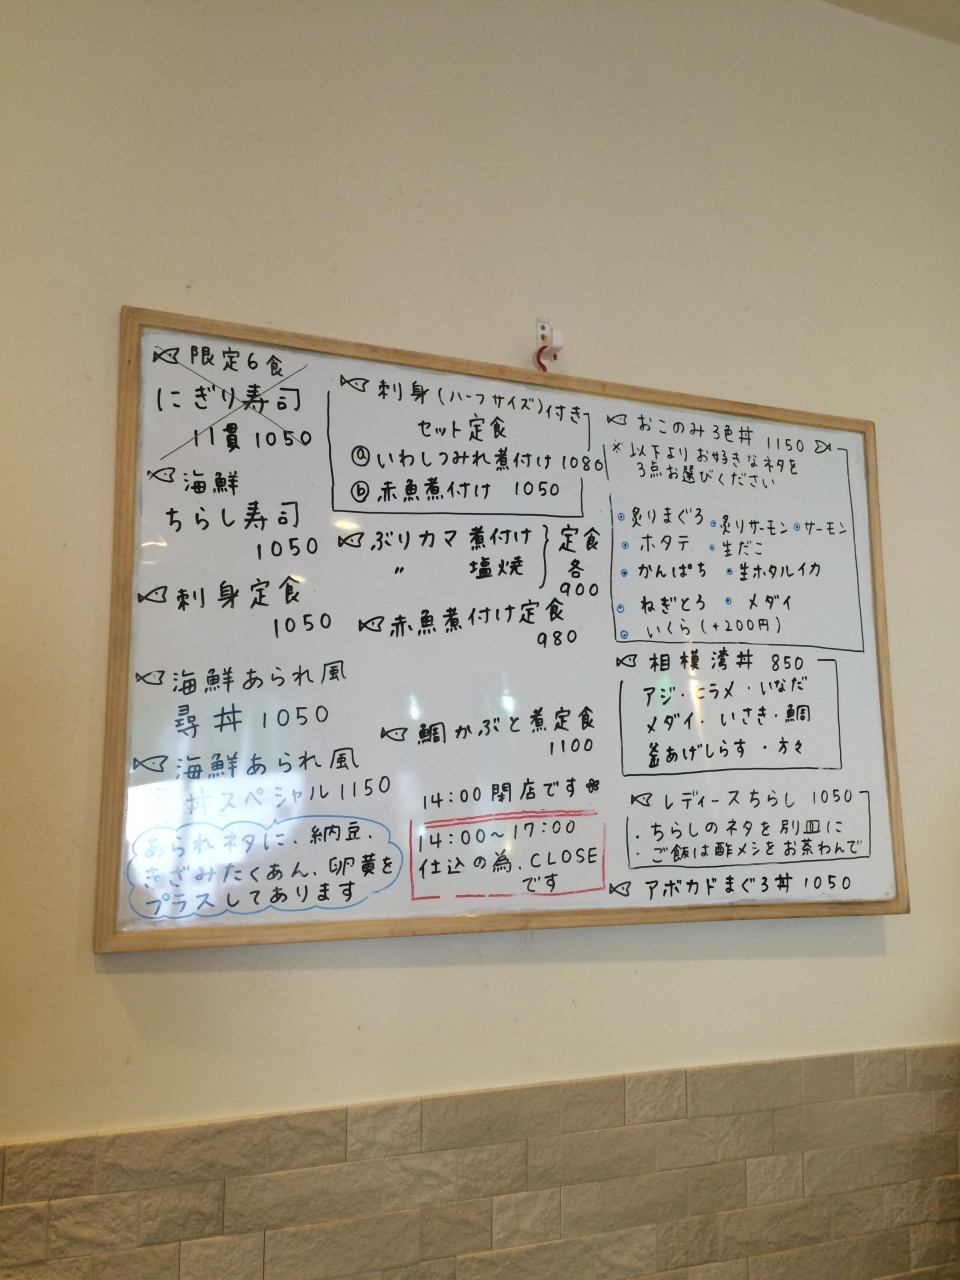 限定6食
にぎり寿司
11貫 1050
海鮮
ちらし寿司
1050
刺身定食
1050
海鮮あられ風
尋丼 1050
海鮮あられ風
丼スペシャル 1150
あられネタに、納豆、
きざみたくあん、卵黄を
プラスしてあります
刺身(ハーフサイズ)付き
セット定食
ⓐいわしつみれ煮付け 1080
ⓑ赤魚煮付け 1050
ぶりカマ 煮付け
〃 塩焼
定食
各
900
赤魚煮付け定食
980
鯛かぶと煮定食
1100
14:00 閉店です
14:00~17:00
仕込の為、CLOSE
です
おこのみ3色丼 1150
※以下よりお好きなネタを
3点お選びください
炙りまぐろ 炙りサーモン サーモン
ホタテ 生だこ
かんぱち 生ホタルイカ
ねぎとろ メダイ
いくら(+200円)
相模湾丼 850
アジ・ヒラメ・いなだ
メダイ・いさき・鯛
釜あげしらす・方々
レディースちらし 1050
・ちらしのネタを別皿に
・ご飯は酢メシをお茶わんで
アボカドまぐろ丼 1050